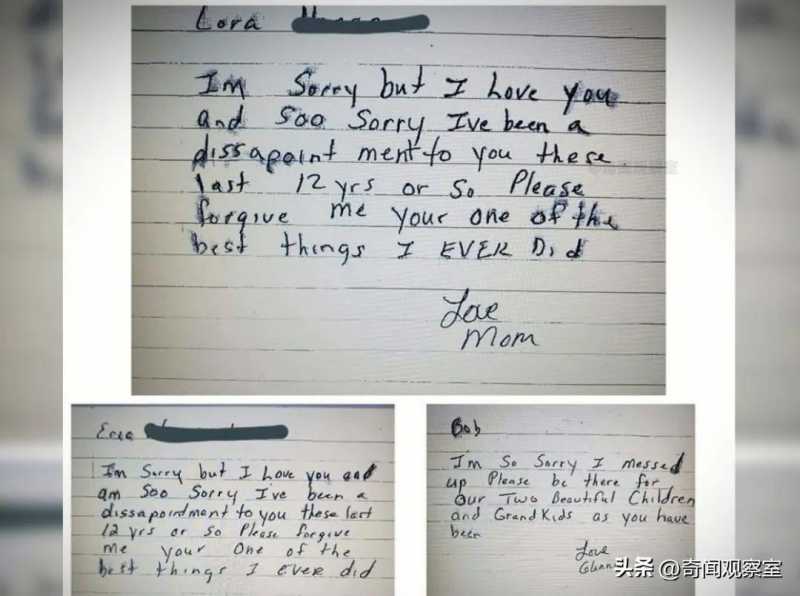 Lora
Im Sorry but I Love you
and Soo Sorry I've been a
dissapoint ment to you these
last 12 yrs or so Please
forgive me your one of the
best things I EVER Did
Love
Mom
Erica
Im Sorry but I Love you and
am Soo Sorry I've been a
dissapointment to you these last
12 yrs or so Please forgive
me your One of the
best things I EVER did
Bob
I'm So Sorry I messed
up Please be there for
Our Two Beautiful Children
and GrandKids as you have
been
Love
头条 @奇闻观察室